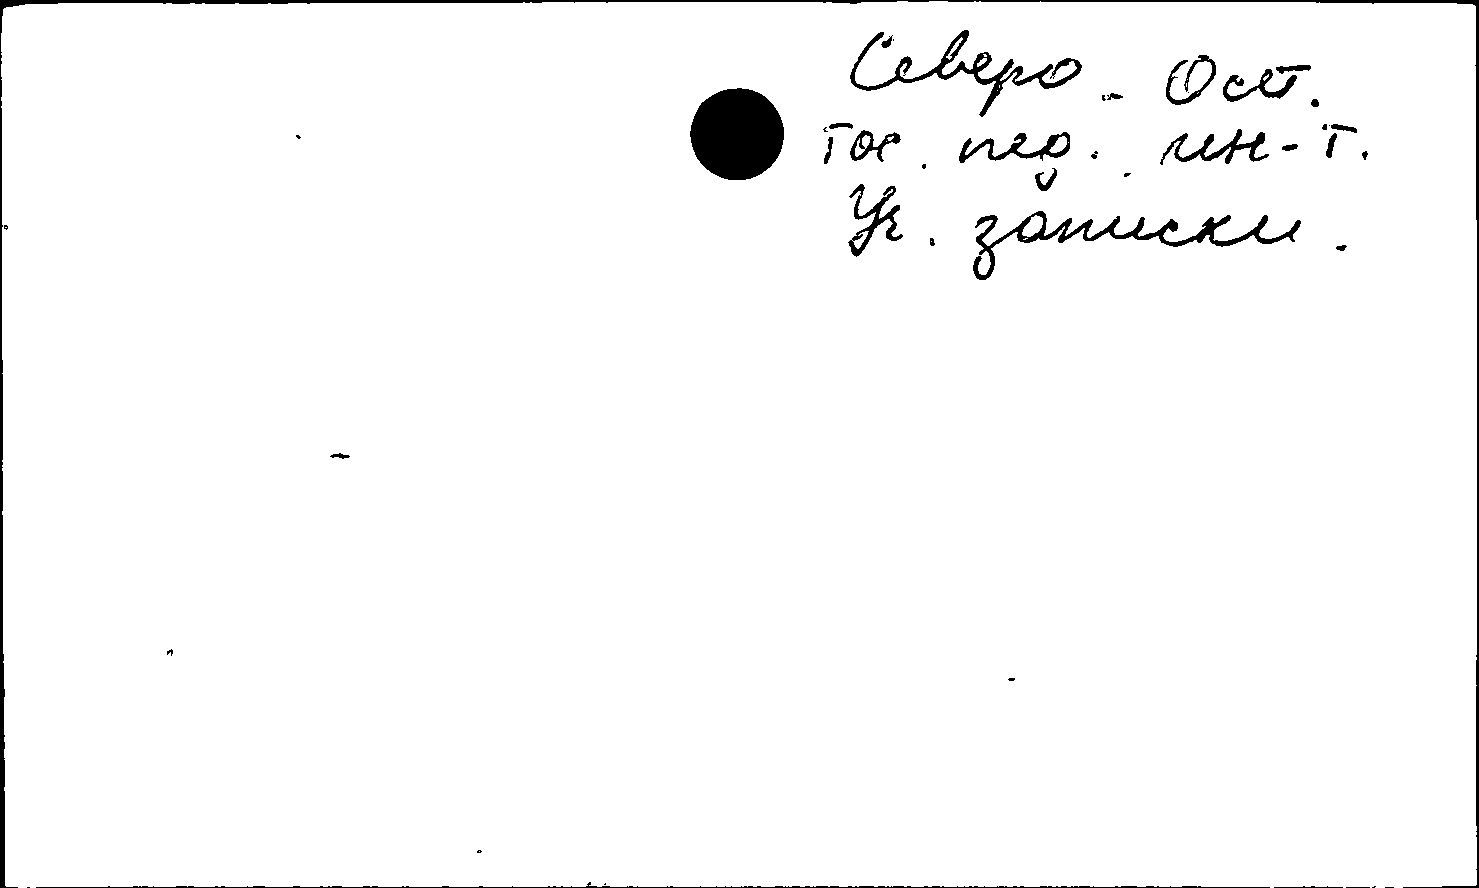 Северо-Осет.
гос. пед. ин-т.
Уч. записки.